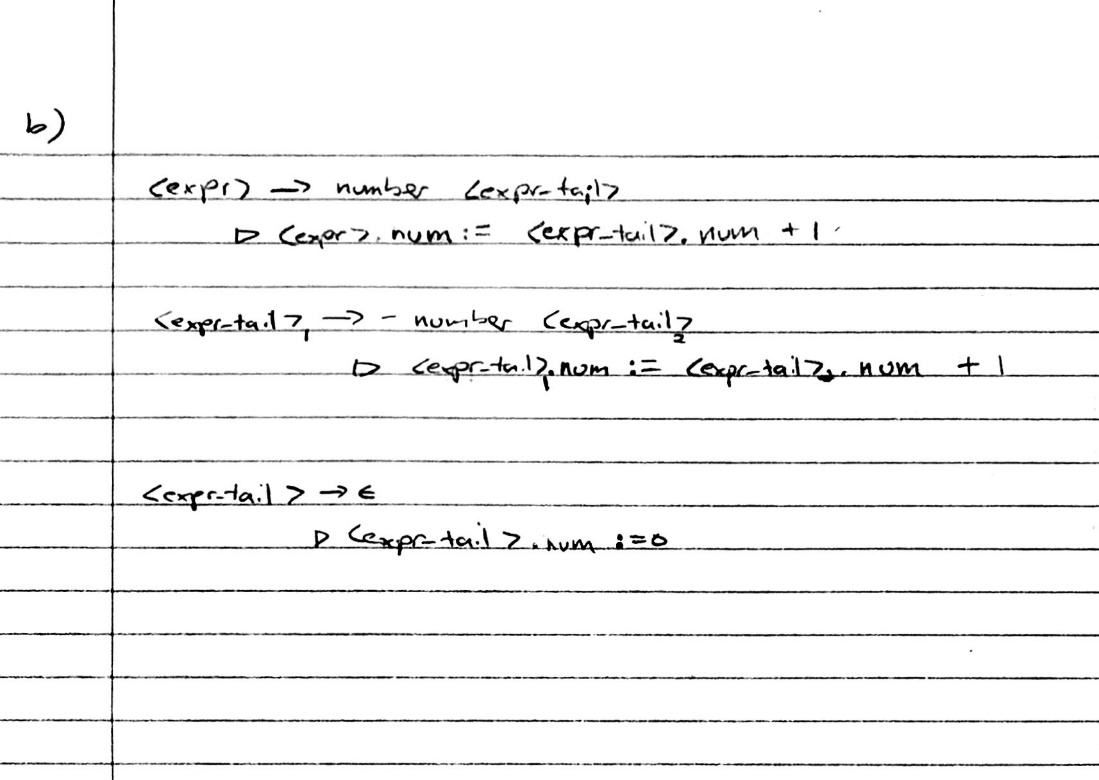 b)
<expr> → number <expr-tail>
▷ <expr>.num := <expr-tail>.num + 1
<expr-tail>₁ → - number <expr-tail>₂
▷ <expr-tail>₁.num := <expr-tail>₂.num + 1
<expr-tail> → ε
▷ <expr-tail>.num := 0